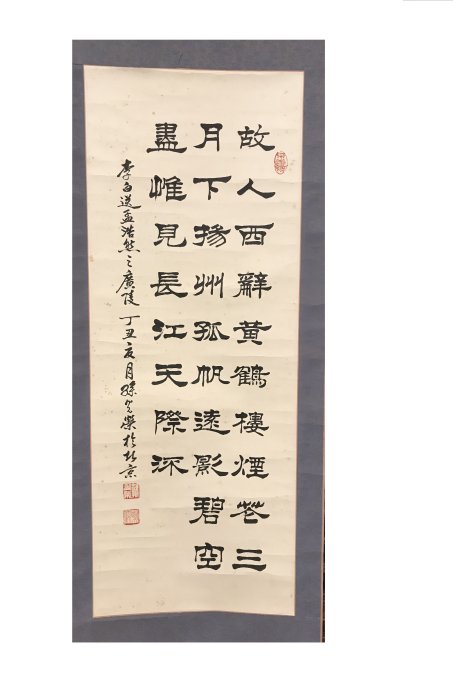 故人西辭黄鶴樓煙花三
月下揚州孤帆遠影碧空
盡惟見長江天際流
李白送孟浩然之廣陵 丁丑亥月孫樂於北京